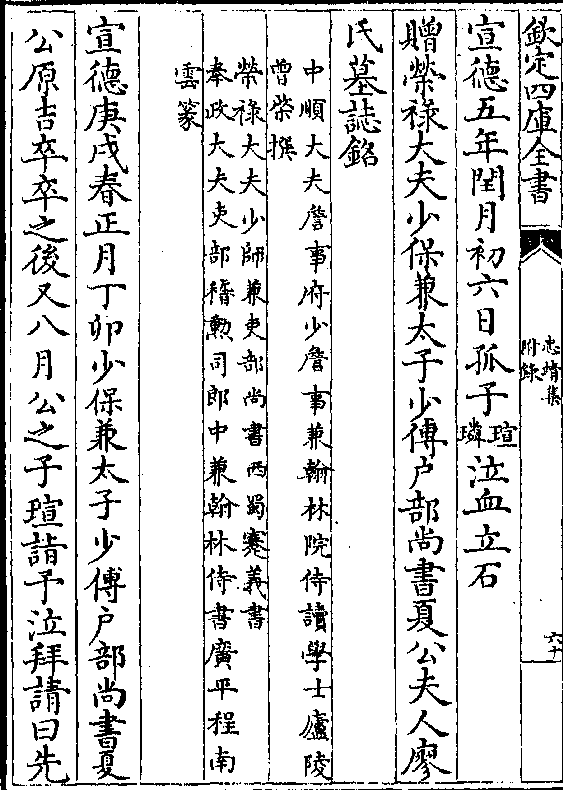 欽定四庫全書
忠靖集
附録
六十
宣德五年閏月初六日孤子瑄璘泣血立石
贈榮祿大夫少保兼太子少傅户部尚書夏公夫人廖
氏墓誌銘
中順大夫詹事府少詹事兼翰林院侍讀學士廬陵
曾榮撰
榮祿大夫少師兼吏部尚書西蜀蹇義書
奉政大夫吏部稽勲司郎中兼翰林侍書廣平程南
雲篆
宣德庚戌春正月丁卯少保兼太子少傅户部尚書夏
公原吉卒卒之後又八月公之子瑄詣予泣拜請曰先